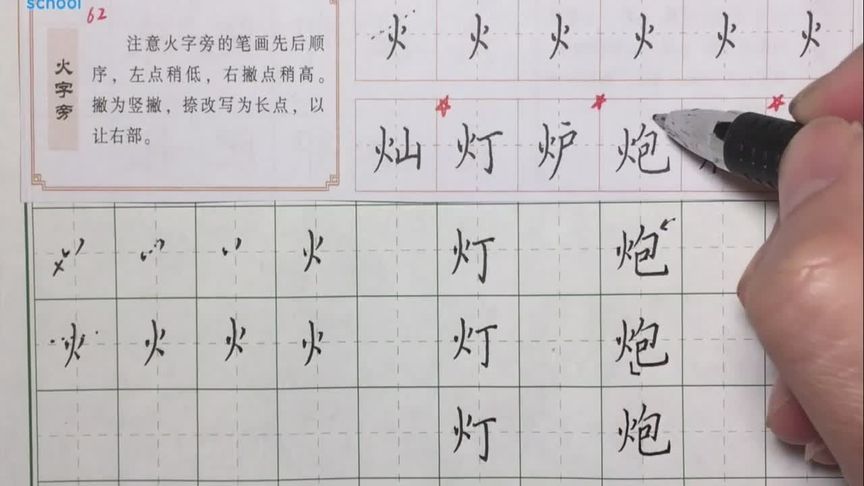 school 62
火字旁
注意火字旁的笔画先后顺
序，左点稍低，右撇点稍高。
撇为竖撇，捺改写为长点，以
让右部。
火 火 火 火 火 火
灿 灯 炉 炮
火 灯 炮
火 火 火 火 灯 炮
灯 炮